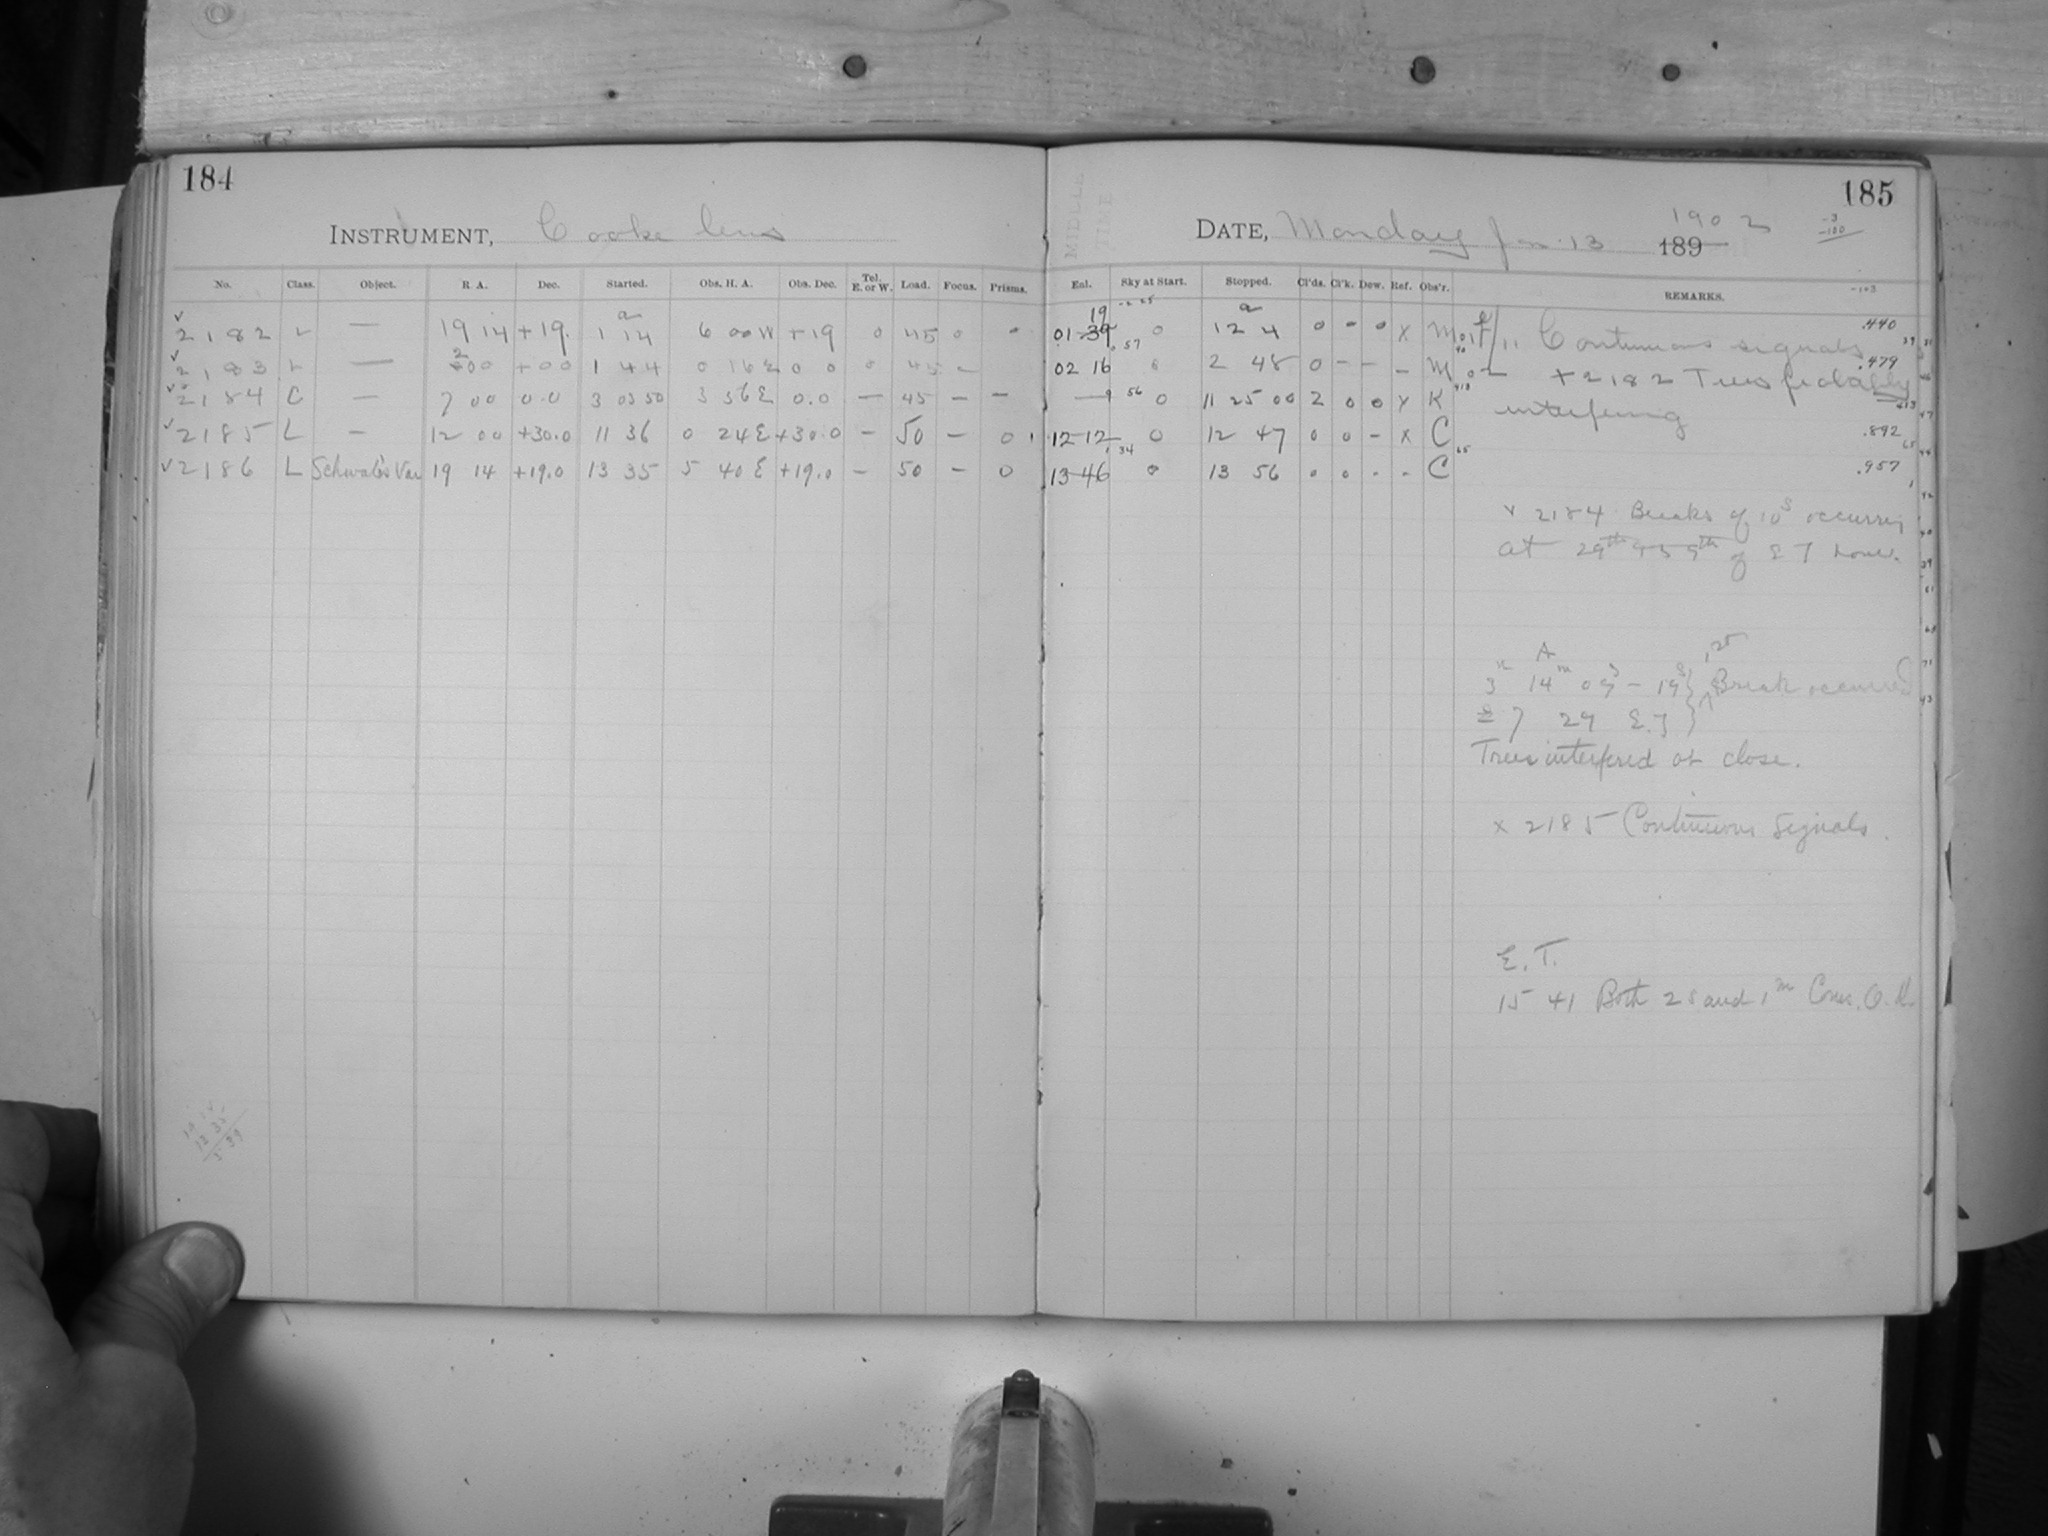 184
INSTRUMENT, Cooke lens
No. Class. Object. R. A. Dec. Started. Obs. H. A. Obs. Dec. Tel. E. or W. Load. Focus. Prisms.
2182 L — 19 14 +19. 1 14 6 00 W +19 0 45 0
2183 L — 2 00 +00 1 44 0 16 E 0 0 0 45 —
2184 C — 7 00 0.0 3 03 50 3 56 E 0.0 — 45 — —
2185 L — 12 00 +30.0 11 36 0 24 E +30.0 — 50 — 0
2186 L Schwab's Var 19 14 +19.0 13 35 5 40 E +19.0 — 50 — 0
185
DATE, Monday Jan. 13 1902
189
Enl. Sky at Start. Stopped. Cl'ds. Cl'k. Dew. Ref. Obs'r. REMARKS.
01 39 19 0 12 4 0 – 0 x M
02 16 0 2 48 0 – – – M
— 0 11 25 00 2 0 0 x K
12 12 0 12 47 0 0 – x C
13 46 0 13 56 0 0 - - C
Continuous signals
x 2182 Trees probably
interfering
.440
.479
.892
.957
x 2184 Breaks of 10s occurring
at 29th & 59th of E T hour.
3h 14m 09s – 19s } Break occurred
29 E.T
Trees interfered at close.
x 2185 Continuous Signals.
E. T.
15 41 Both 2s and 1m Conn. O.K.